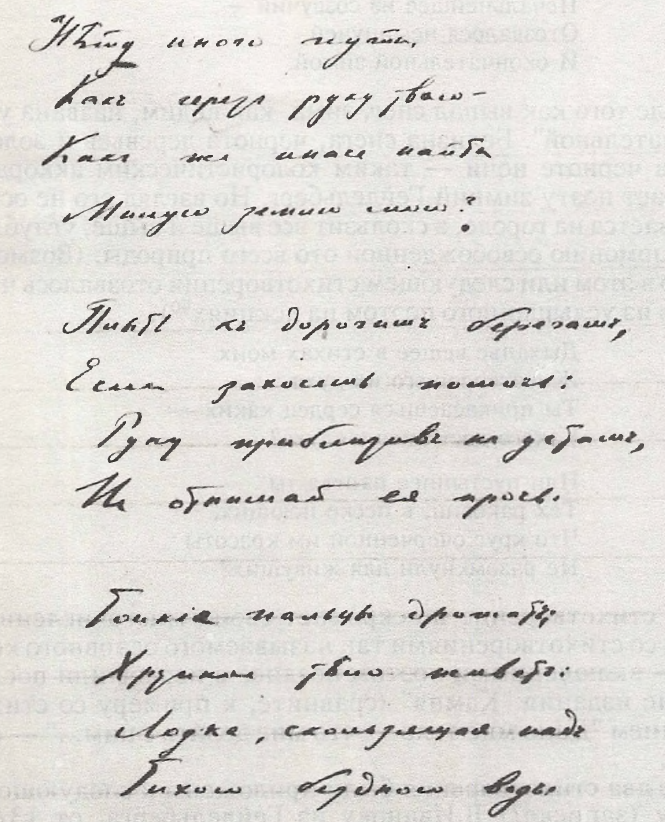 Нѣту иного пути,
Какъ через руку твою –
Какъ же иначе найти
Милую землю мою?
Плыть къ дорогимъ берегамъ,
Если захочешь помочь:
Руку приблизивъ къ устамъ,
Не отнимай ея прочь.
Тонкіе пальцы дрожатъ;
Хрупкое тѣло живетъ:
Лодка, скользящая надъ
Тихою бездною водъ.